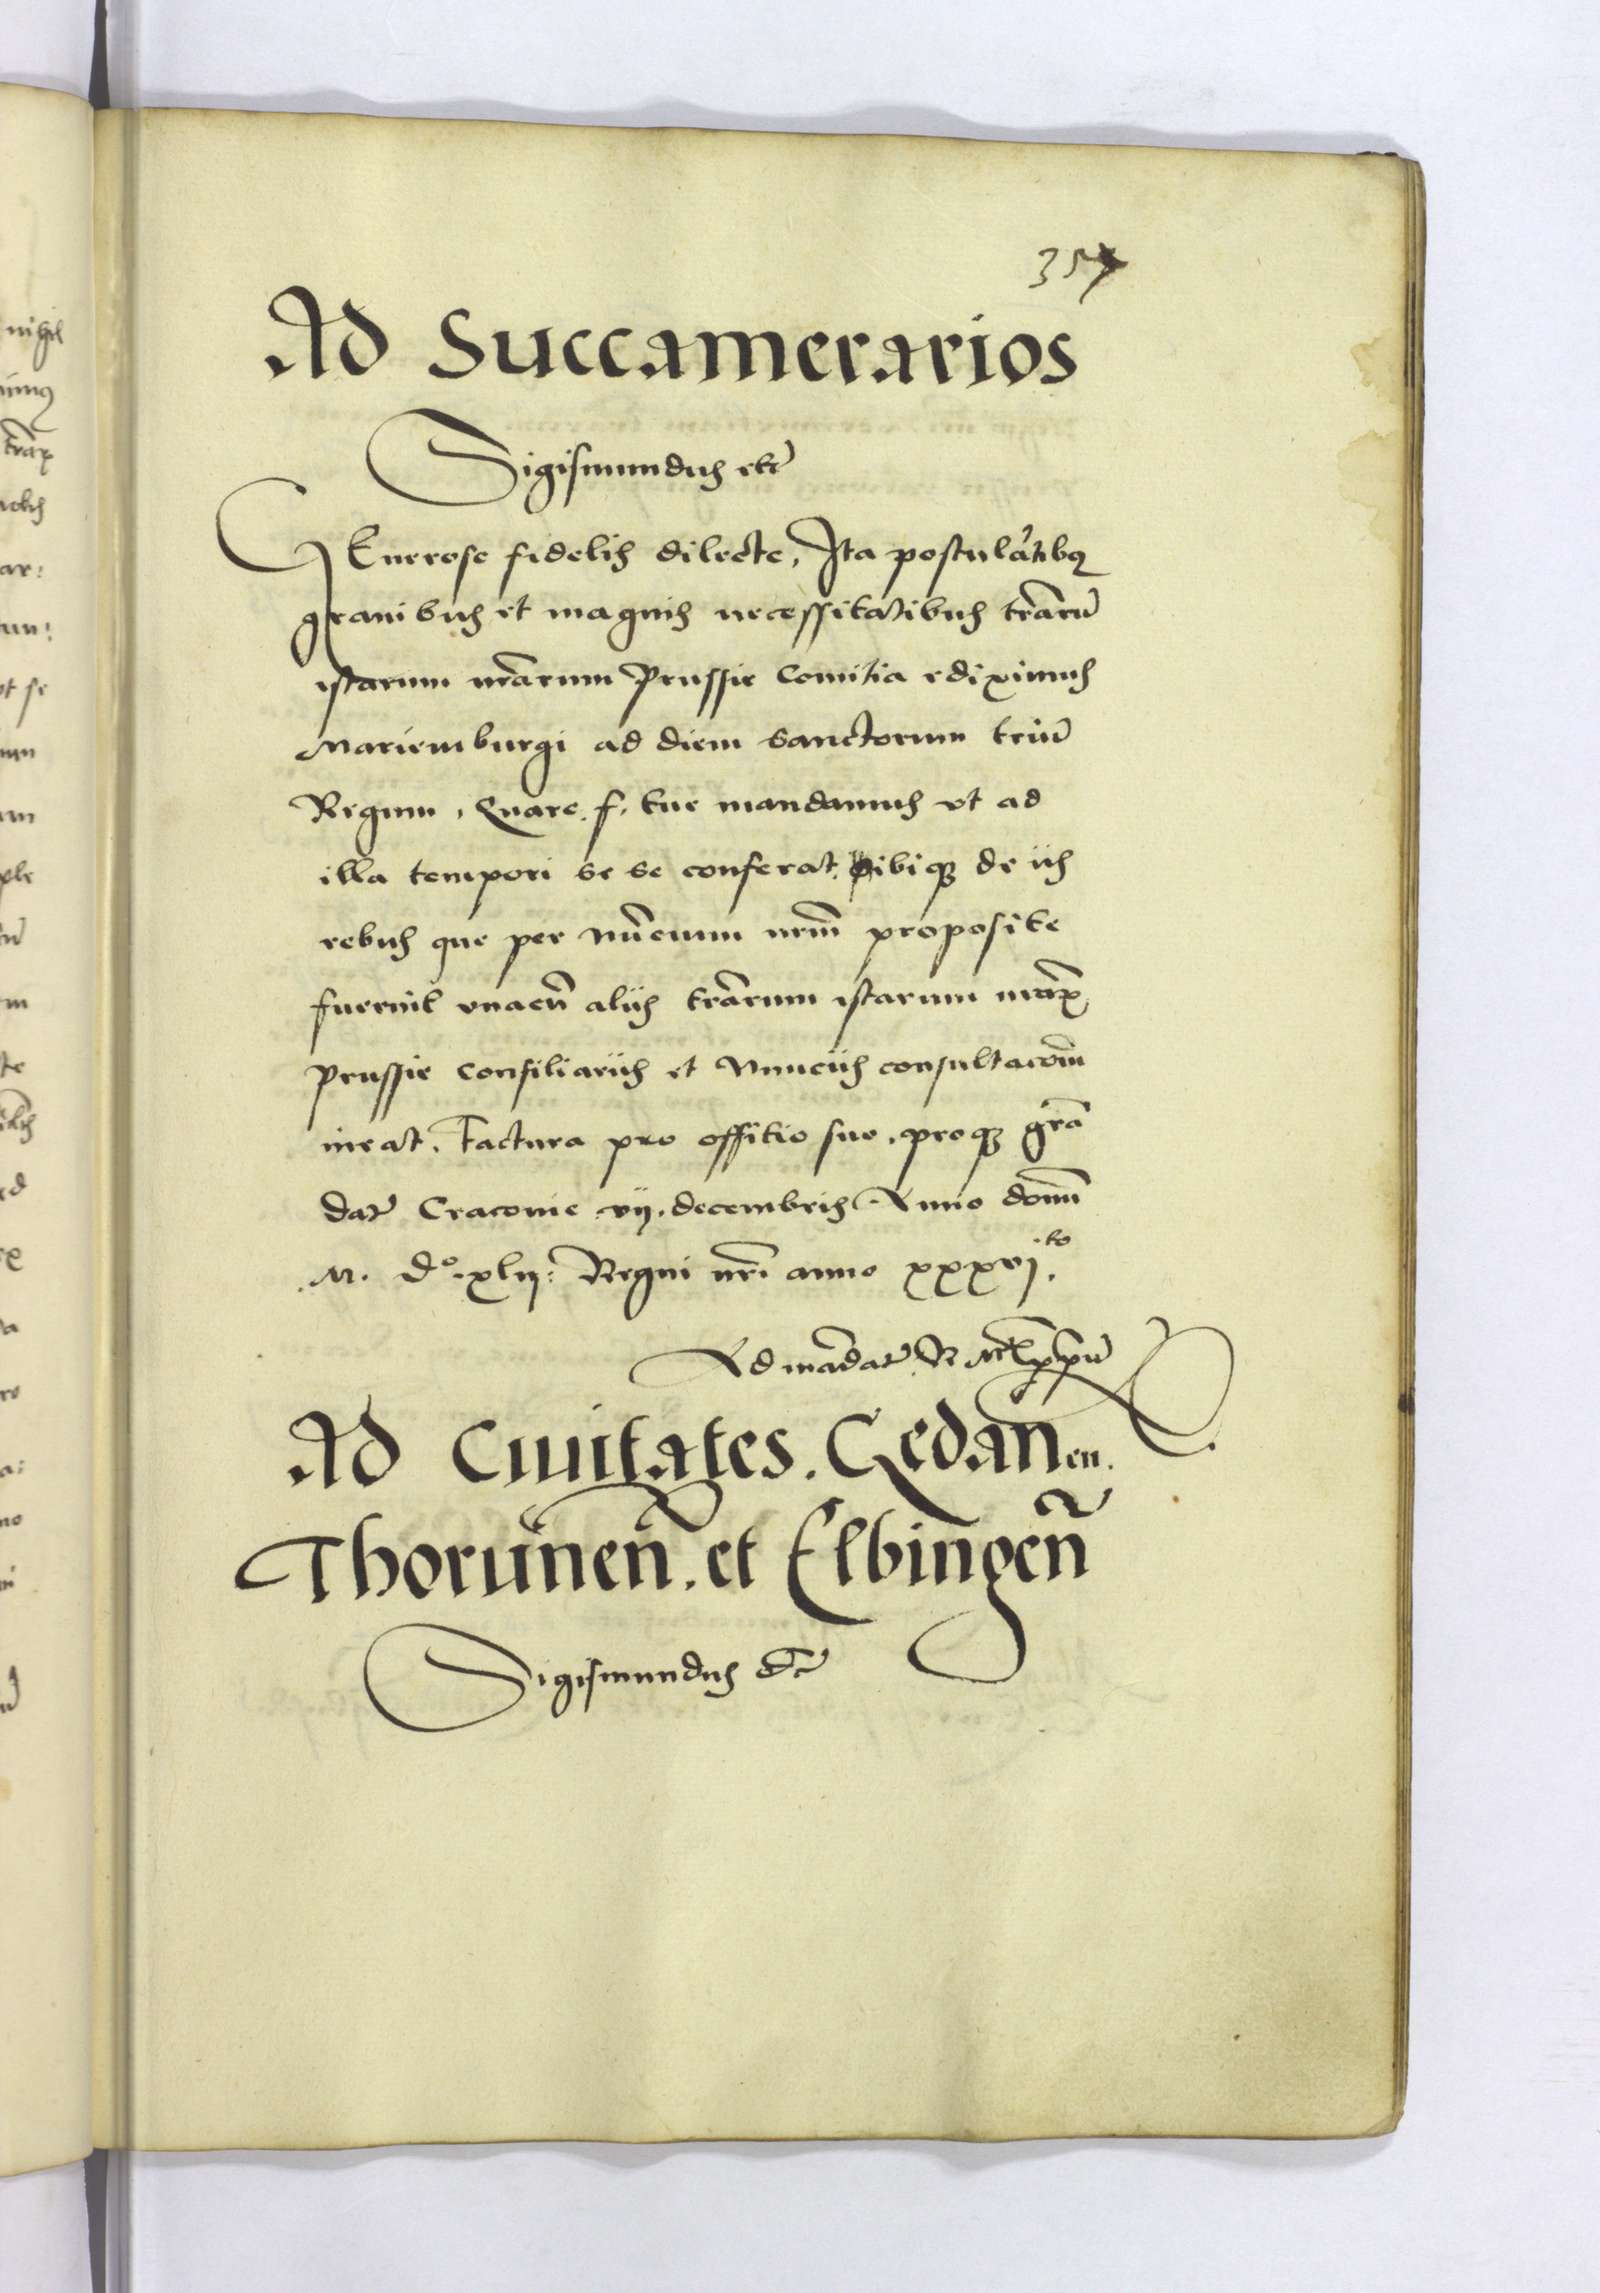 357
Ad Succamerarios
Sigismundus etc̃
GEnerose fidelis dilecte, Ita postulãtibꝫ
gravibus et magnis necessitatibus trãrũ
istarum nrãrum Prussie Comitia ediximus
Mariemburgi ad diem sanctorum triũ
Regum, Quare f. tue mandamus vt ad
illa tempori se se conferat, ibiqꝫ de iis
rebus que per Nũcium nrm̃ proposite
fuerint vnacũ aliis trãrum istarum nrãꝝ
Prussie Consiliariis et Nunciis consultacõm
ineat. Factura pro offitio suo, proqꝫ grã
dat̃ Cracovie vij. decembris Anno domi̅
M. d°. xlij: Regni nrĩ anno xxxvj.to
Ad mãdat̃ R. Mtis ppũ
Ad Civitates. Gedanen.
Thorunen̄. et Elbingen̄
Sigismundus etc̃
nihil